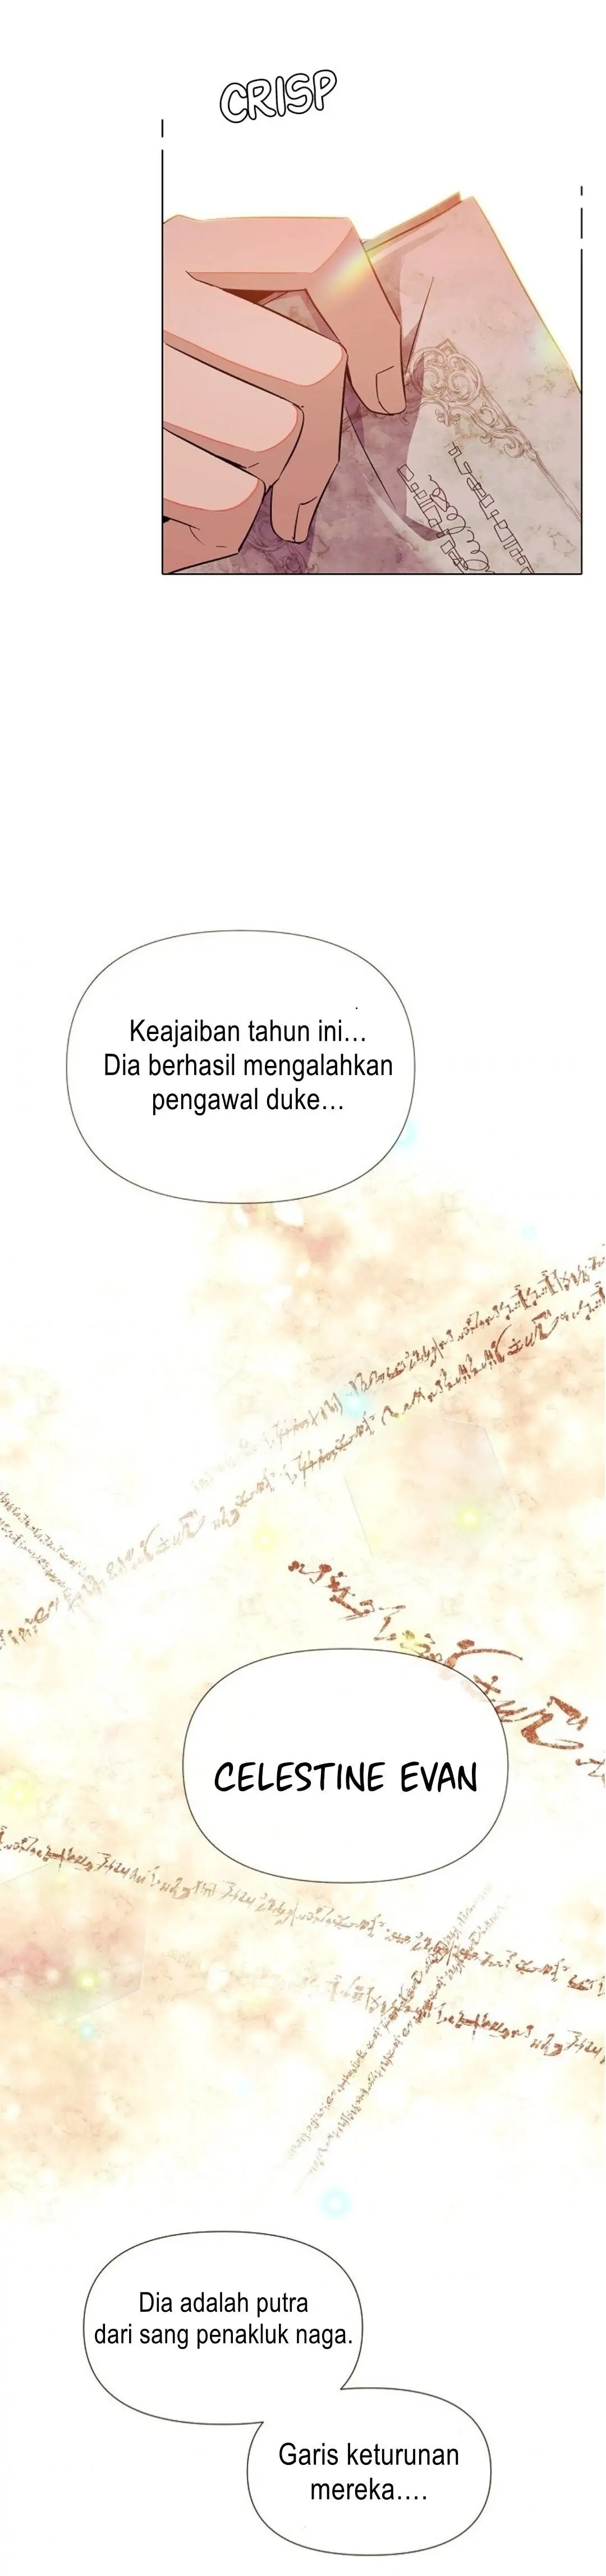 CRISP
Keajaiban tahun ini...
Dia berhasil mengalahkan
pengawal duke...
CELESTINE EVAN
Dia adalah putra
dari sang penakluk naga.
Garis keturunan
mereka....